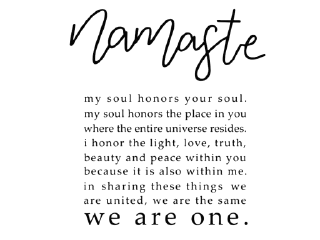 namaste
my soul honors your soul.
my soul honors the place in you
where the entire universe resides.
i honor the light, love, truth,
beauty and peace within you
because it is also within me.
in sharing these things we
are united, we are the same
we are one.